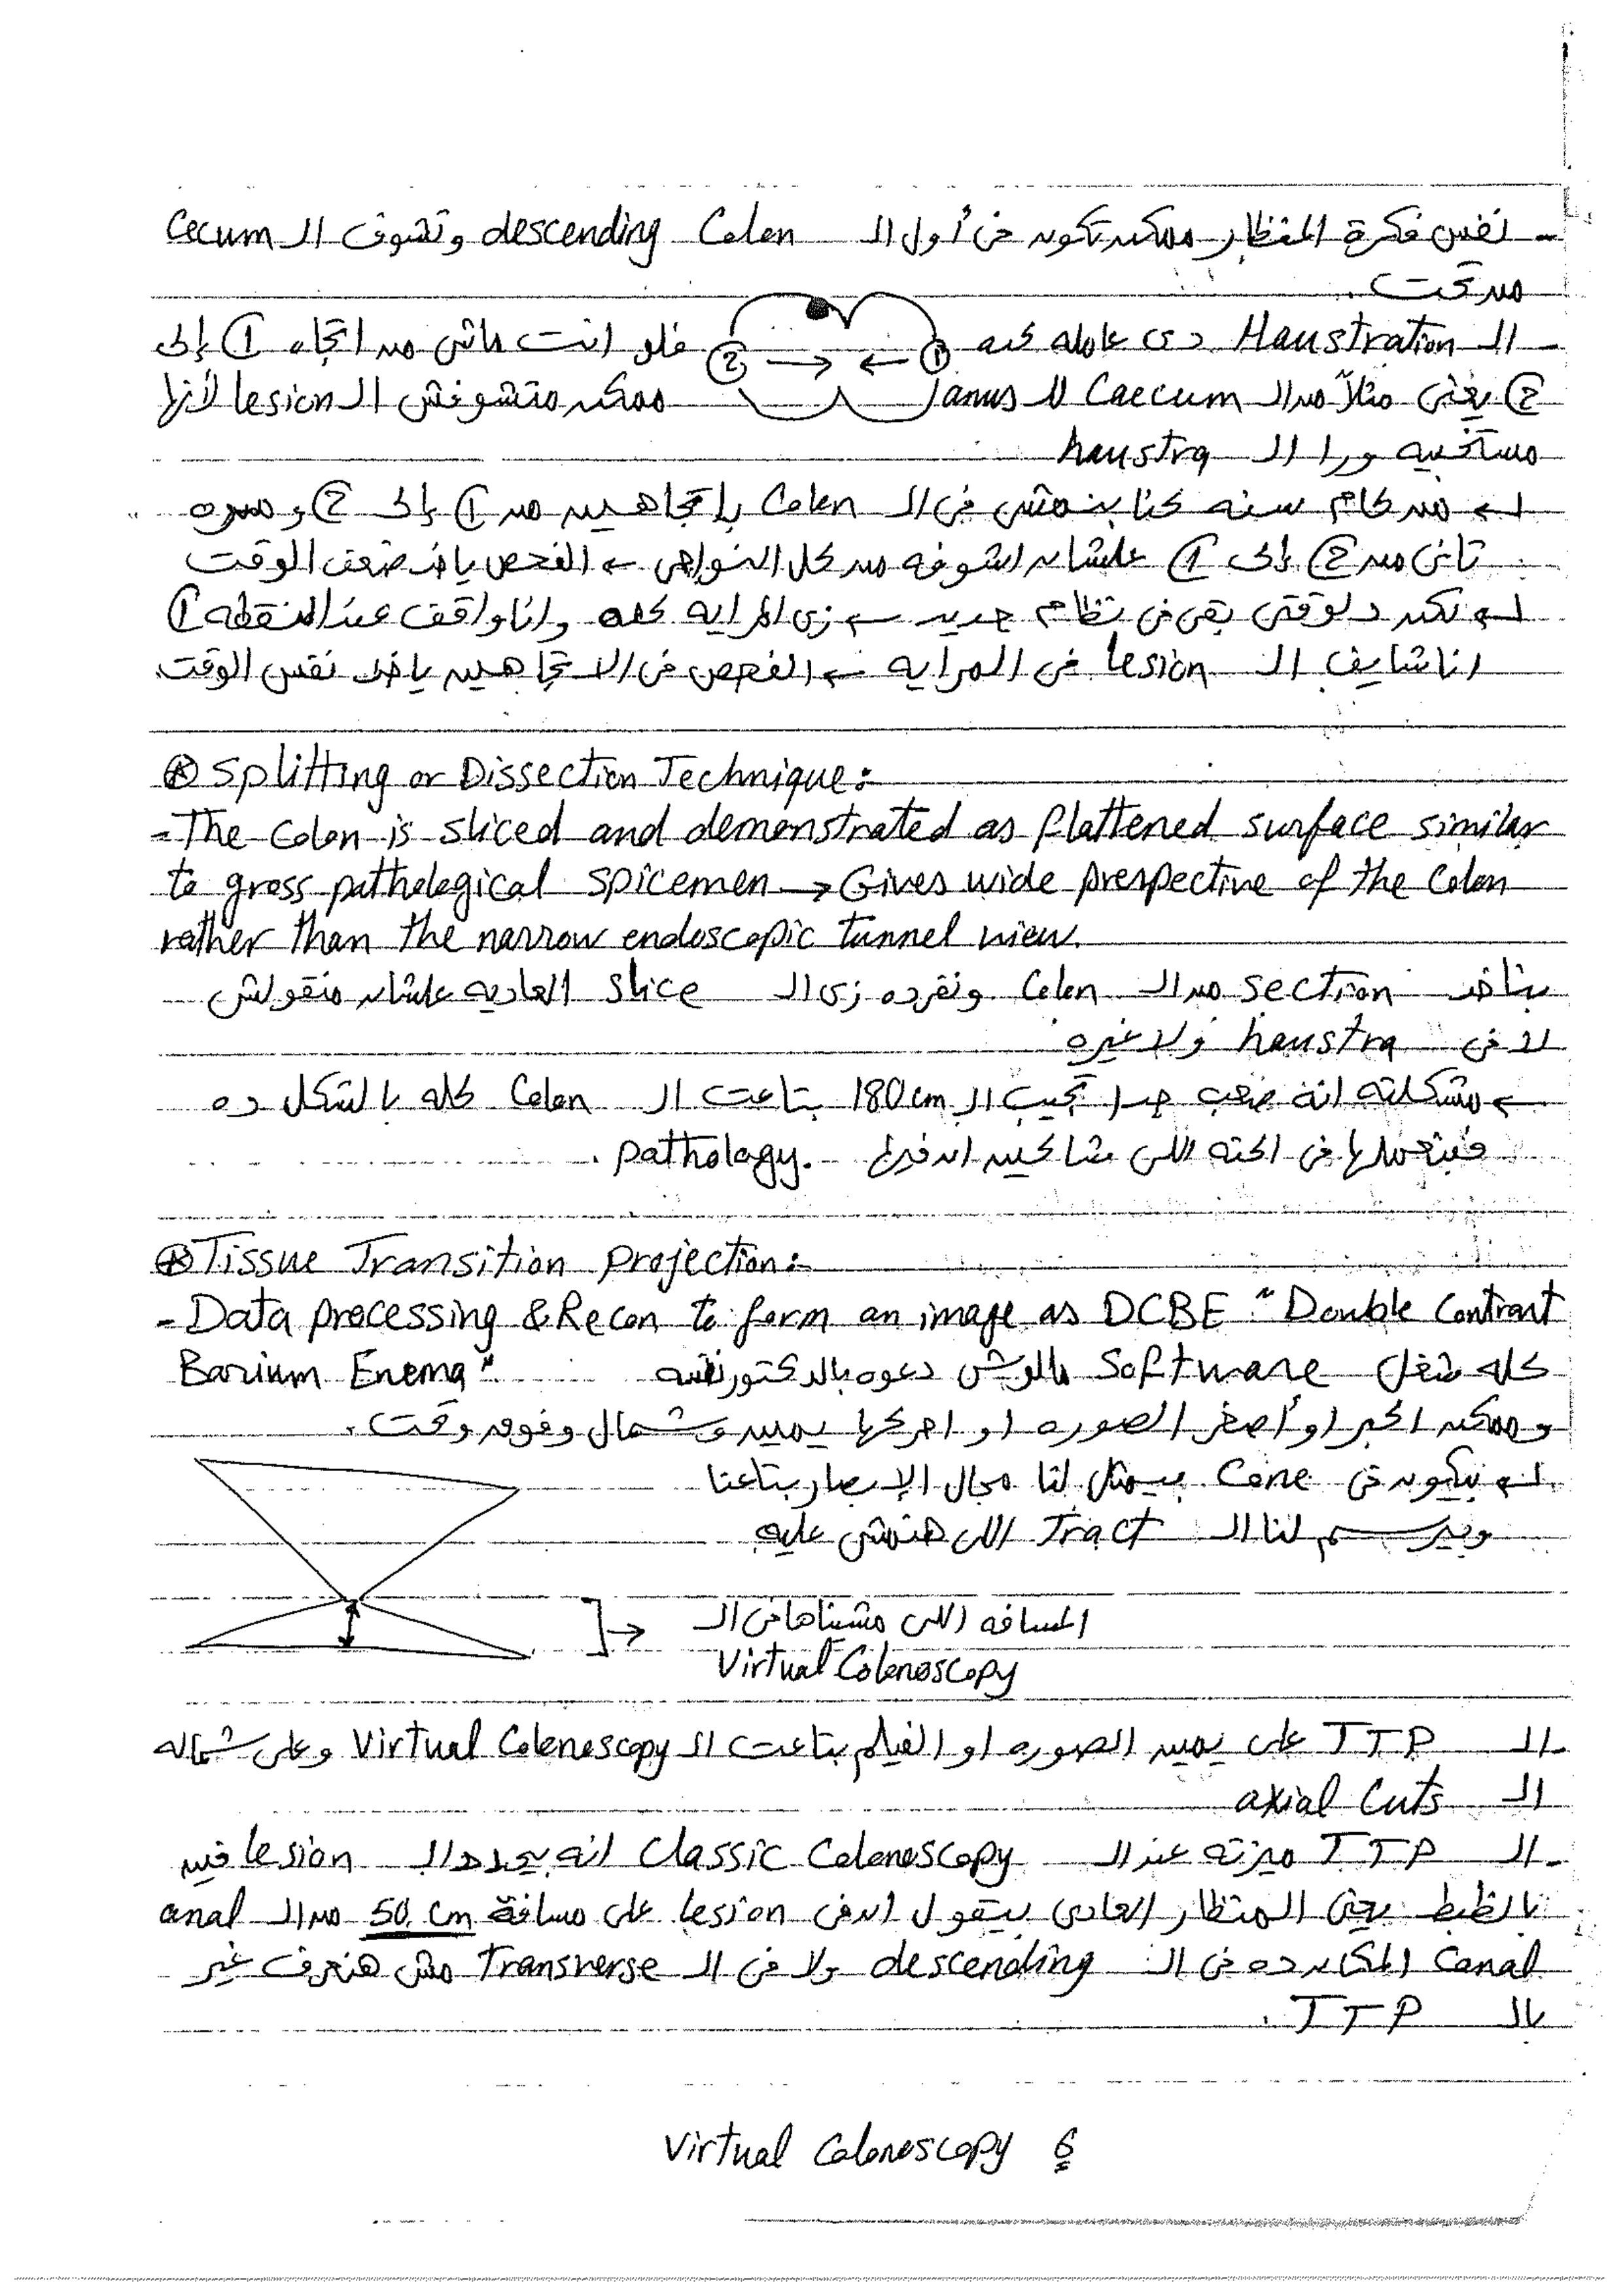 - نفس فكرة المنظار ممكن تكون فى أول الـ descending Colon وتشوف الـ Cecum
من تحت.
- الـ Haustration دى عامله كده ① ← → ② فلو انت ماشى من اتجاه ① إلى
② يعنى مثلاً من الـ Caecum للـ anus ممكن متشوفش الـ lesion لأنها
مستخبيه ورا الـ haustra
↳ من كام سنه كنا بنمشى فى الـ Colon باتجاهين من ① إلى ② ومره
تانى من ② إلى ① علشان اشوفه من كل النواحى ← الفحص ياخد ضعف الوقت
↳ لكن دلوقتى بقى فى نظام جديد ← زى المرايه كده وانا واقف عند النقطه ①
انا شايف الـ lesion فى المرايه ← الفحص فى الاتجاهين ياخد نفس الوقت.
⊛ Splitting or Dissection Technique:
- The Colon is sliced and demonstrated as flattened surface similar
to gross pathological spicemen → Gives wide prespective of the Colon
rather than the narrow endoscopic tunnel view.
بناخد section من الـ Colon ونفرده زى الـ slice العاديه علشان منقولش
لا فى haustra ولا غيره
← مشكلته انه صعب جدا تجيب الـ 180cm بتاعت الـ Colon كله بالشكل ده
فبنعملها فى الحته اللى شاكين ان فيها pathology.
⊛ Tissue Transition Projection:
- Data processing & Recon to form an image as DCBE "Double Contrast
Barium Enema" كله شغل Software مالوش دعوه بالدكتور نفسه
وممكن اكبر او أصغر الصوره او احركها يمين وشمال وفوق وتحت.
↳ بيكون فى Cone بيمثل لنا مجال الإبصار بتاعنا
وبيرسم لنا الـ Tract اللى هنمشى عليه
المسافه اللى مشيناها فى الـ
Virtual Colonoscopy
- الـ TTP على يمين الصوره او الفيلم بتاعت الـ Virtual Colonoscopy وعلى شماله
الـ axial Cuts
- الـ TTP ميزته عند الـ Classic Colonoscopy انه يحدد الـ lesion فين
بالظبط يعنى المنظار العادى بيقول ان فى lesion على مسافة 50 cm من الـ anal
Canal المكان ده فى الـ descending ولا فى الـ Transverse مش هنعرف غير
بالـ TTP.
Virtual Colonoscopy 6